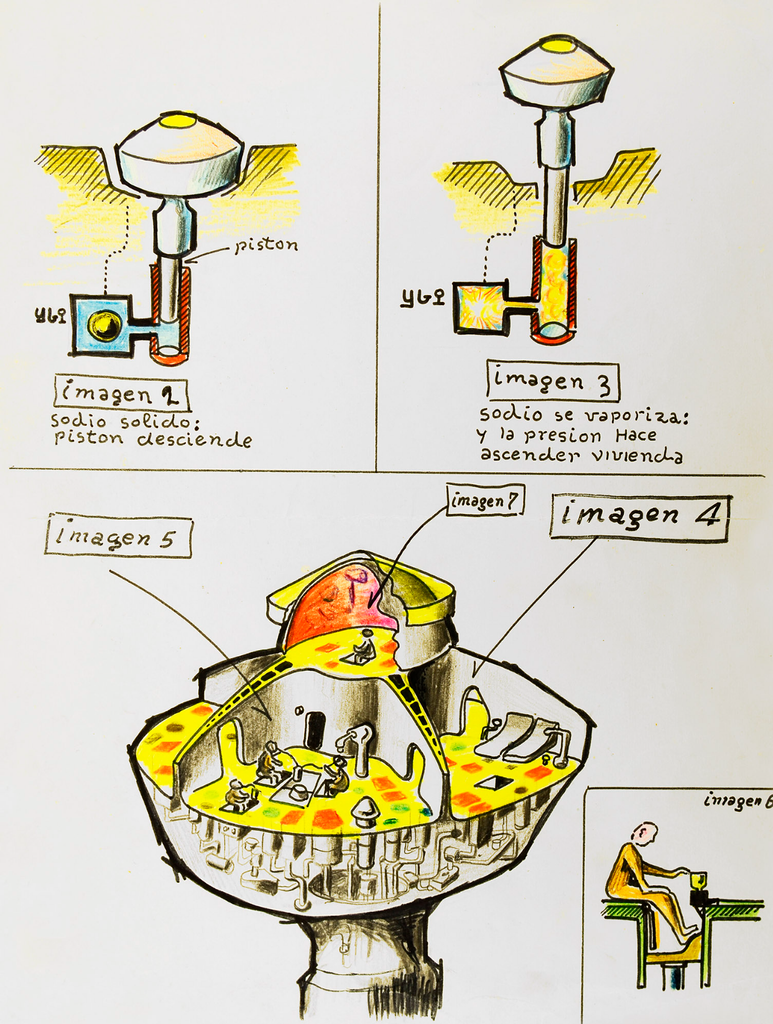 piston
imagen 2
sodio solido:
piston desciende
imagen 3
sodio se vaporiza:
y la presion Hace
ascender vivienda
imagen 5
imagen 7
imagen 4
imagen 6